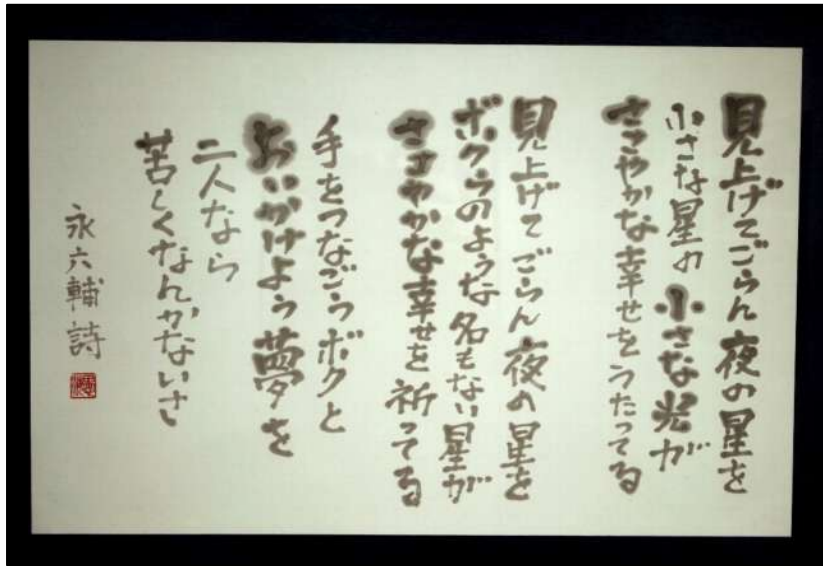 見上げてごらん夜の星を
小さな星の小さな光が
ささやかな幸せをうたってる
見上げてごらん夜の星を
ボクらのような名もない星が
ささやかな幸せを祈ってる
手をつなごうボクと
おいかけよう夢を
二人なら
苦しくなんかないさ
永六輔詩